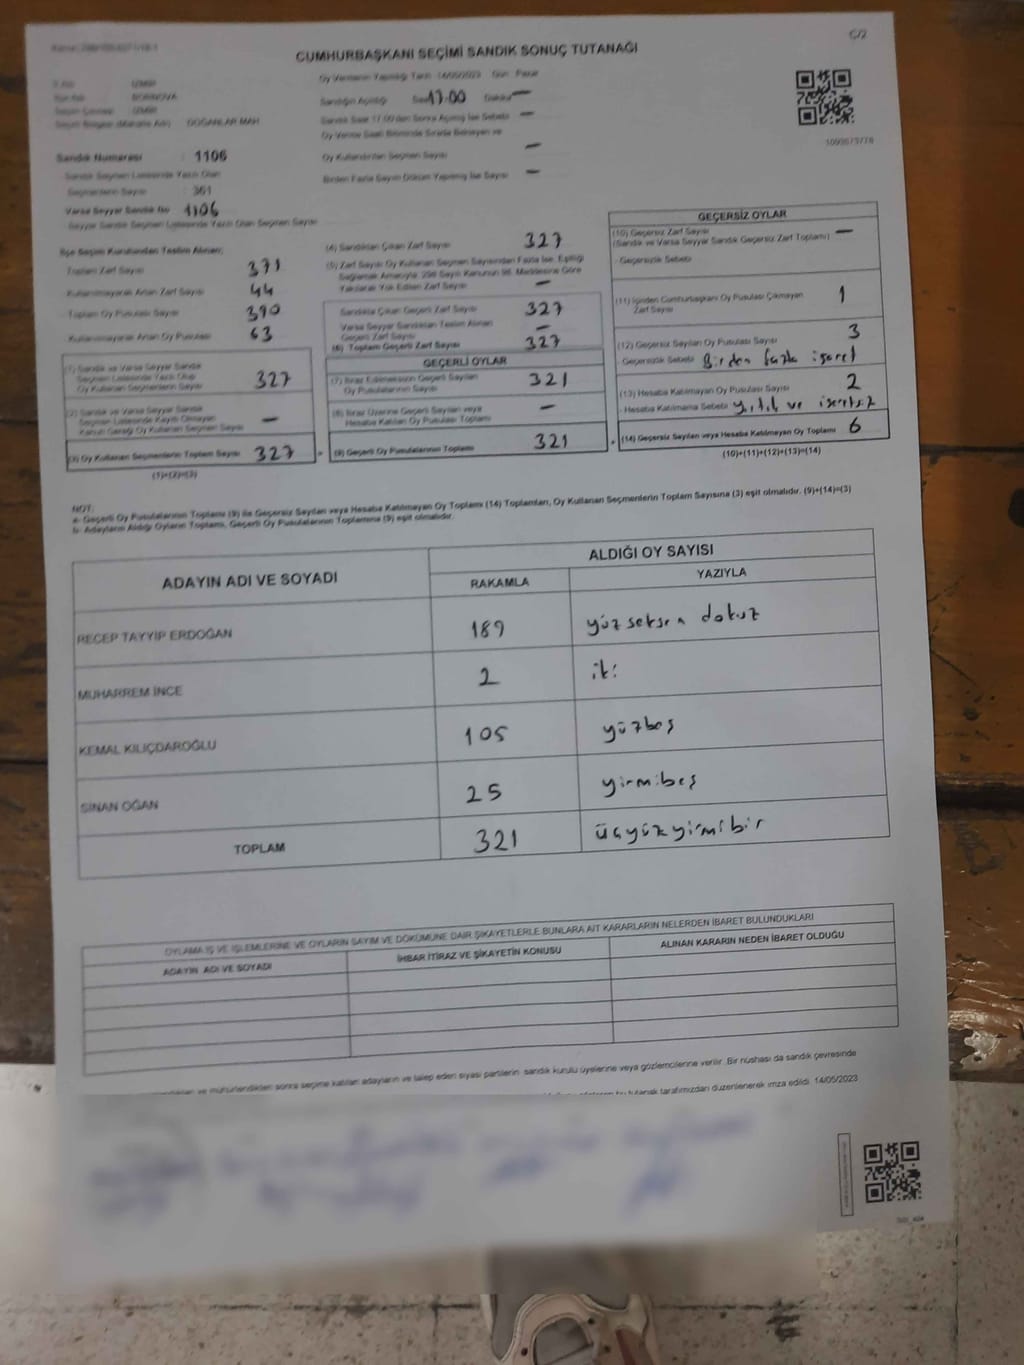 C/2
CUMHURBAŞKANI SEÇİMİ SANDIK SONUÇ TUTANAĞI
İZMİR
BORNOVA
İZMİR
DOĞANLAR MAH.
Oy Vermenin Yapıldığı Tarih 14/05/2023 Gün Pazar
Sandığın Açıldığı Saat 17:00 Dakika —
Sandık Saat 17.00'den Sonra Açılmış İse Sebebi —
Oy Verme Saati Bitiminde Sırada Bekleyen ve
Oy Kullandırılan Seçmen Sayısı —
Birden Fazla Sayım Döküm Yapılmış İse Sayısı —
Sandık Numarası : 1106
Sandık Seçmen Listesinde Yazılı Olan
Seçmenlerin Sayısı
Varsa Seyyar Sandık No 1106
Seyyar Sandık Seçmen Listesinde Yazılı Olan Seçmen Sayısı
İlçe Seçim Kurulundan Teslim Alınan;
Toplam Zarf Sayısı 371
Kullanılmayarak Artan Zarf Sayısı 44
Toplam Oy Pusulası Sayısı 390
Kullanılmayarak Artan Oy Pusulası 63
(1) Sandık ve Varsa Seyyar Sandık
Seçmen Listesinde Yazılı Olup
Oy Kullanan Seçmenlerin Sayısı 327
(2) Sandık ve Varsa Seyyar Sandık
Seçmen Listesinde Kayıtlı Olmayan
Kanun Gereği Oy Kullanan Seçmen Sayısı —
(3) Oy Kullanan Seçmenlerin Toplam Sayısı 327
(1)+(2)=(3)
(4) Sandıktan Çıkan Zarf Sayısı 327
(5) Zarf Sayısı Oy Kullanan Seçmen Sayısından Fazla İse, Eşitliği
Sağlamak Amacıyla, 298 Sayılı Kanunun 98. Maddesine Göre
Yakılarak Yok Edilen Zarf Sayısı —
Sandıkta Çıkan Geçerli Zarf Sayısı 327
Varsa Seyyar Sandıktan Teslim Alınan
Geçerli Zarf Sayısı —
(6) Toplam Geçerli Zarf Sayısı 327
GEÇERLİ OYLAR
(7) İtiraz Edilmeksizin Geçerli Sayılan
Oy Pusulalarının Sayısı 321
(8) İtiraz Üzerine Geçerli Sayılan veya
Hesaba Katılan Oy Pusulası Toplamı —
(9) Geçerli Oy Pusulalarının Toplamı 321
GEÇERSİZ OYLAR
(10) Geçersiz Zarf Sayısı —
(Sandık ve Varsa Seyyar Sandık Geçersiz Zarf Toplamı)
Geçersizlik Sebebi
(11) İçinden Cumhurbaşkanı Oy Pusulası Çıkmayan
Zarf Sayısı 1
(12) Geçersiz Sayılan Oy Pusulası Sayısı 3
Geçersizlik Sebebi Birden fazla işaret
(13) Hesaba Katılmayan Oy Pusulası Sayısı 2
Hesaba Katılmama Sebebi yırtık ve işaretsiz
(14) Geçersiz Sayılan veya Hesaba Katılmayan Oy Toplamı 6
(10)+(11)+(12)+(13)=(14)
NOT:
a- Geçerli Oy Pusulalarının Toplamı (9) ile Geçersiz Sayılan veya Hesaba Katılmayan Oy Toplamı (14) Toplamları, Oy Kullanan Seçmenlerin Toplam Sayısına (3) eşit olmalıdır. (9)+(14)=(3)
b- Adayların Aldığı Oyların Toplamı, Geçerli Oy Pusulalarının Toplamına (9) eşit olmalıdır.
ADAYIN ADI VE SOYADI
ALDIĞI OY SAYISI
RAKAMLA YAZIYLA
RECEP TAYYİP ERDOĞAN 189 yüz seksen dokuz
MUHARREM İNCE 2 iki
KEMAL KILIÇDAROĞLU 105 yüzbeş
SİNAN OĞAN 25 yirmibeş
TOPLAM 321 üçyüzyirmibir
OYLAMA İŞ VE İŞLEMLERİNE VE OYLARIN SAYIM VE DÖKÜMÜNE DAİR ŞİKAYETLERLE BUNLARA AİT KARARLARIN NELERDEN İBARET BULUNDUKLARI
ADAYIN ADI VE SOYADI İHBAR İTİRAZ VE ŞİKAYETİN KONUSU ALINAN KARARIN NEDEN İBARET OLDUĞU
ve mühürlendikten sonra seçime katılan adayların ve talep eden siyasi partilerin sandık kurulu üyelerine veya gözlemcilerine verilir. Bir nüshası da sandık çevresinde
bu tutanak tarafımızdan düzenlenerek imza edildi. 14/05/2023